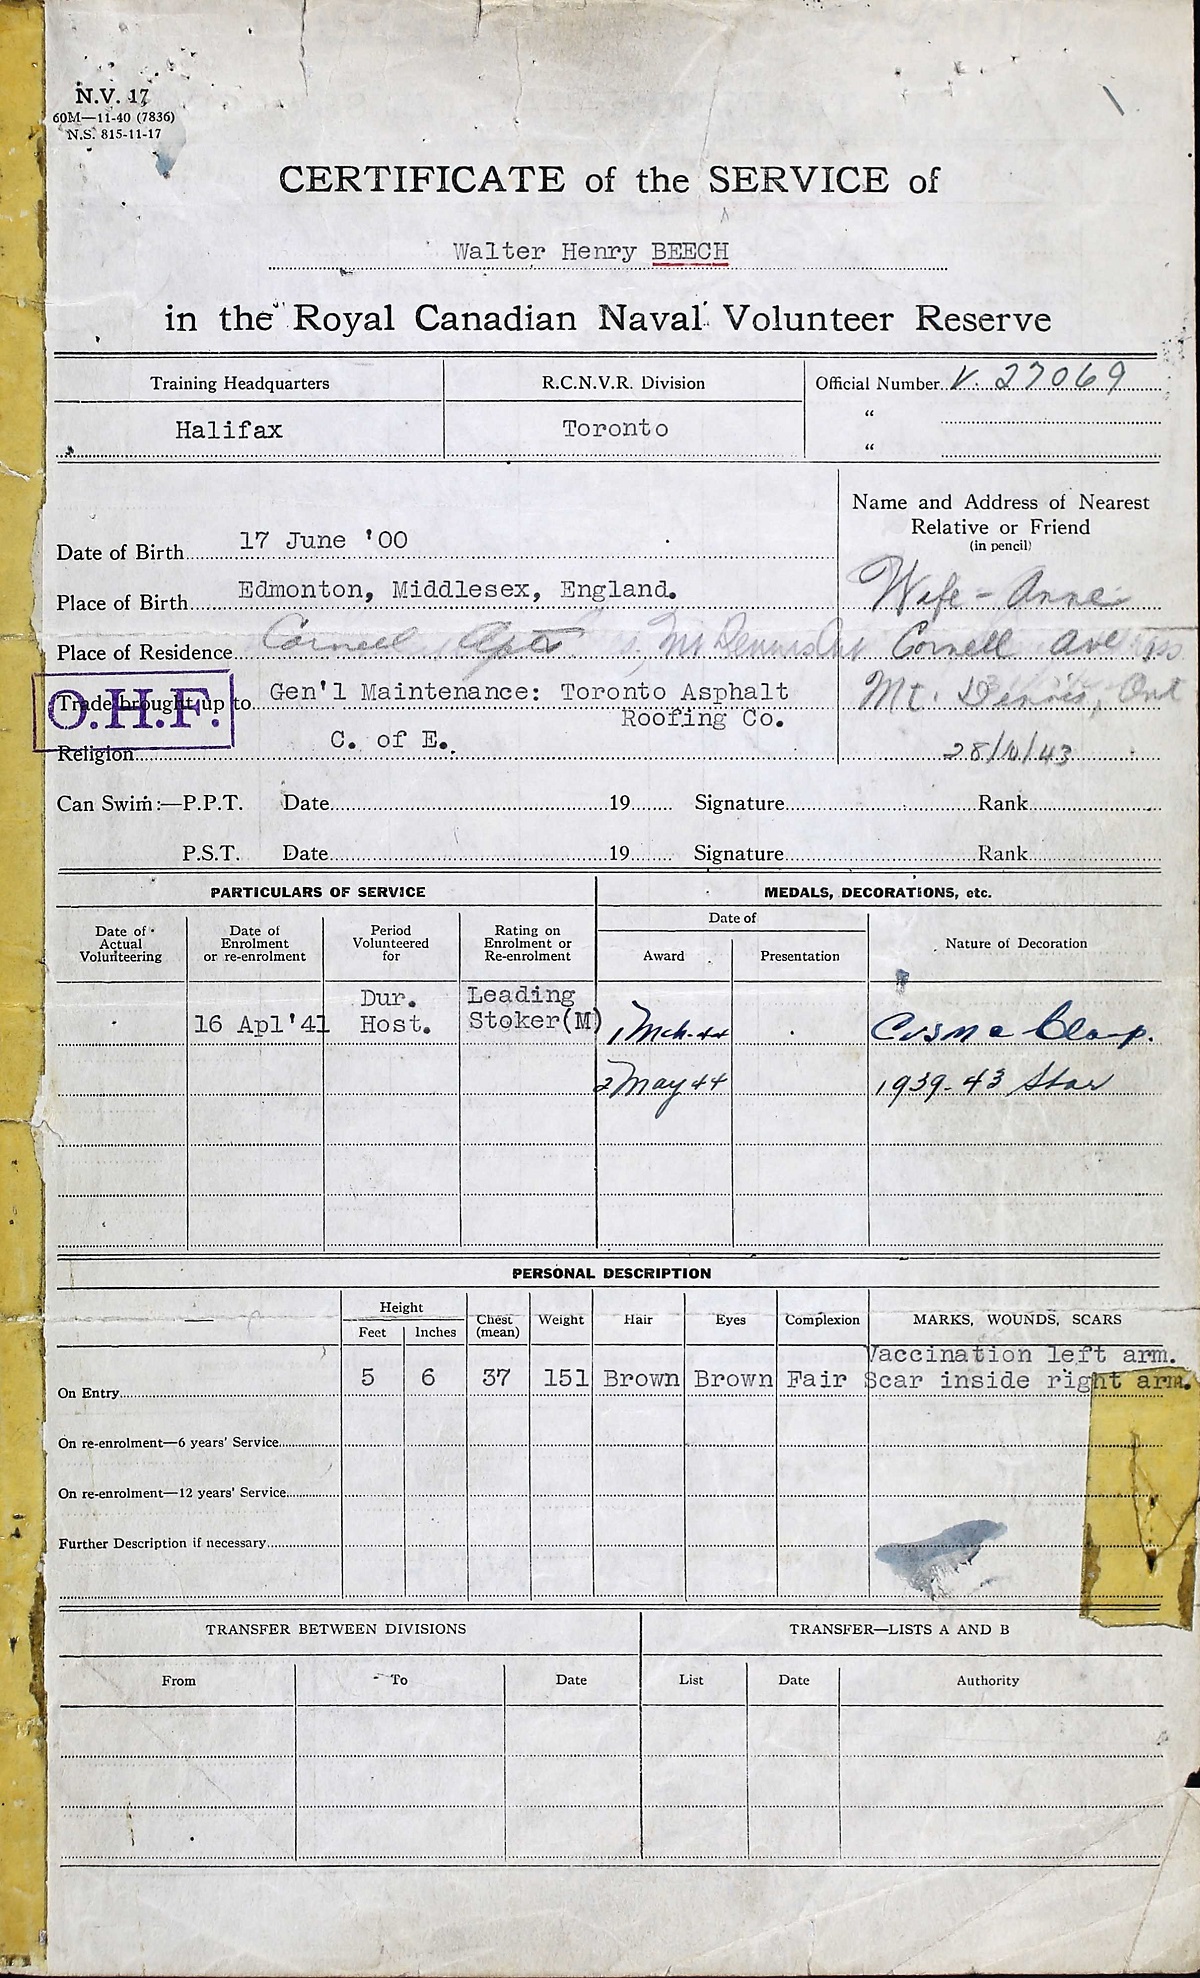 N.V. 17
60M—11-40 (7836)
N.S. 815-11-17
CERTIFICATE of the SERVICE of
Walter Henry BEECH
in the Royal Canadian Naval Volunteer Reserve
Training Headquarters R.C.N.V.R. Division Official Number V. 27069
Halifax Toronto "
"
Name and Address of Nearest
Relative or Friend
(in pencil)
Date of Birth 17 June '00
Place of Birth Edmonton, Middlesex, England. Wife - Anne
Place of Residence Cornell Apts Mt Dennis Ont Cornell Ave
O.H.F.
Trade brought up to Gen'l Maintenance: Toronto Asphalt Mt. Dennis, Ont
Roofing Co.
Religion C. of E. 28/10/43
Can Swim:—P.P.T. Date 19 Signature Rank
P.S.T. Date 19 Signature Rank
PARTICULARS OF SERVICE MEDALS, DECORATIONS, etc.
Date of Actual Volunteering Date of Enrolment or re-enrolment Period Volunteered for Rating on Enrolment or Re-enrolment Date of Nature of Decoration
Award Presentation
Dur. Leading
16 Apl'41 Host. Stoker(M) 1 Mch. 44 CVSM & Clasp.
2 May 44 1939-43 Star
PERSONAL DESCRIPTION
Height Chest (mean) Weight Hair Eyes Complexion MARKS, WOUNDS, SCARS
Feet Inches
Vaccination left arm.
On Entry 5 6 37 151 Brown Brown Fair Scar inside right arm.
On re-enrolment—6 years' Service
On re-enrolment—12 years' Service
Further Description if necessary
TRANSFER BETWEEN DIVISIONS TRANSFER—LISTS A AND B
From To Date List Date Authority